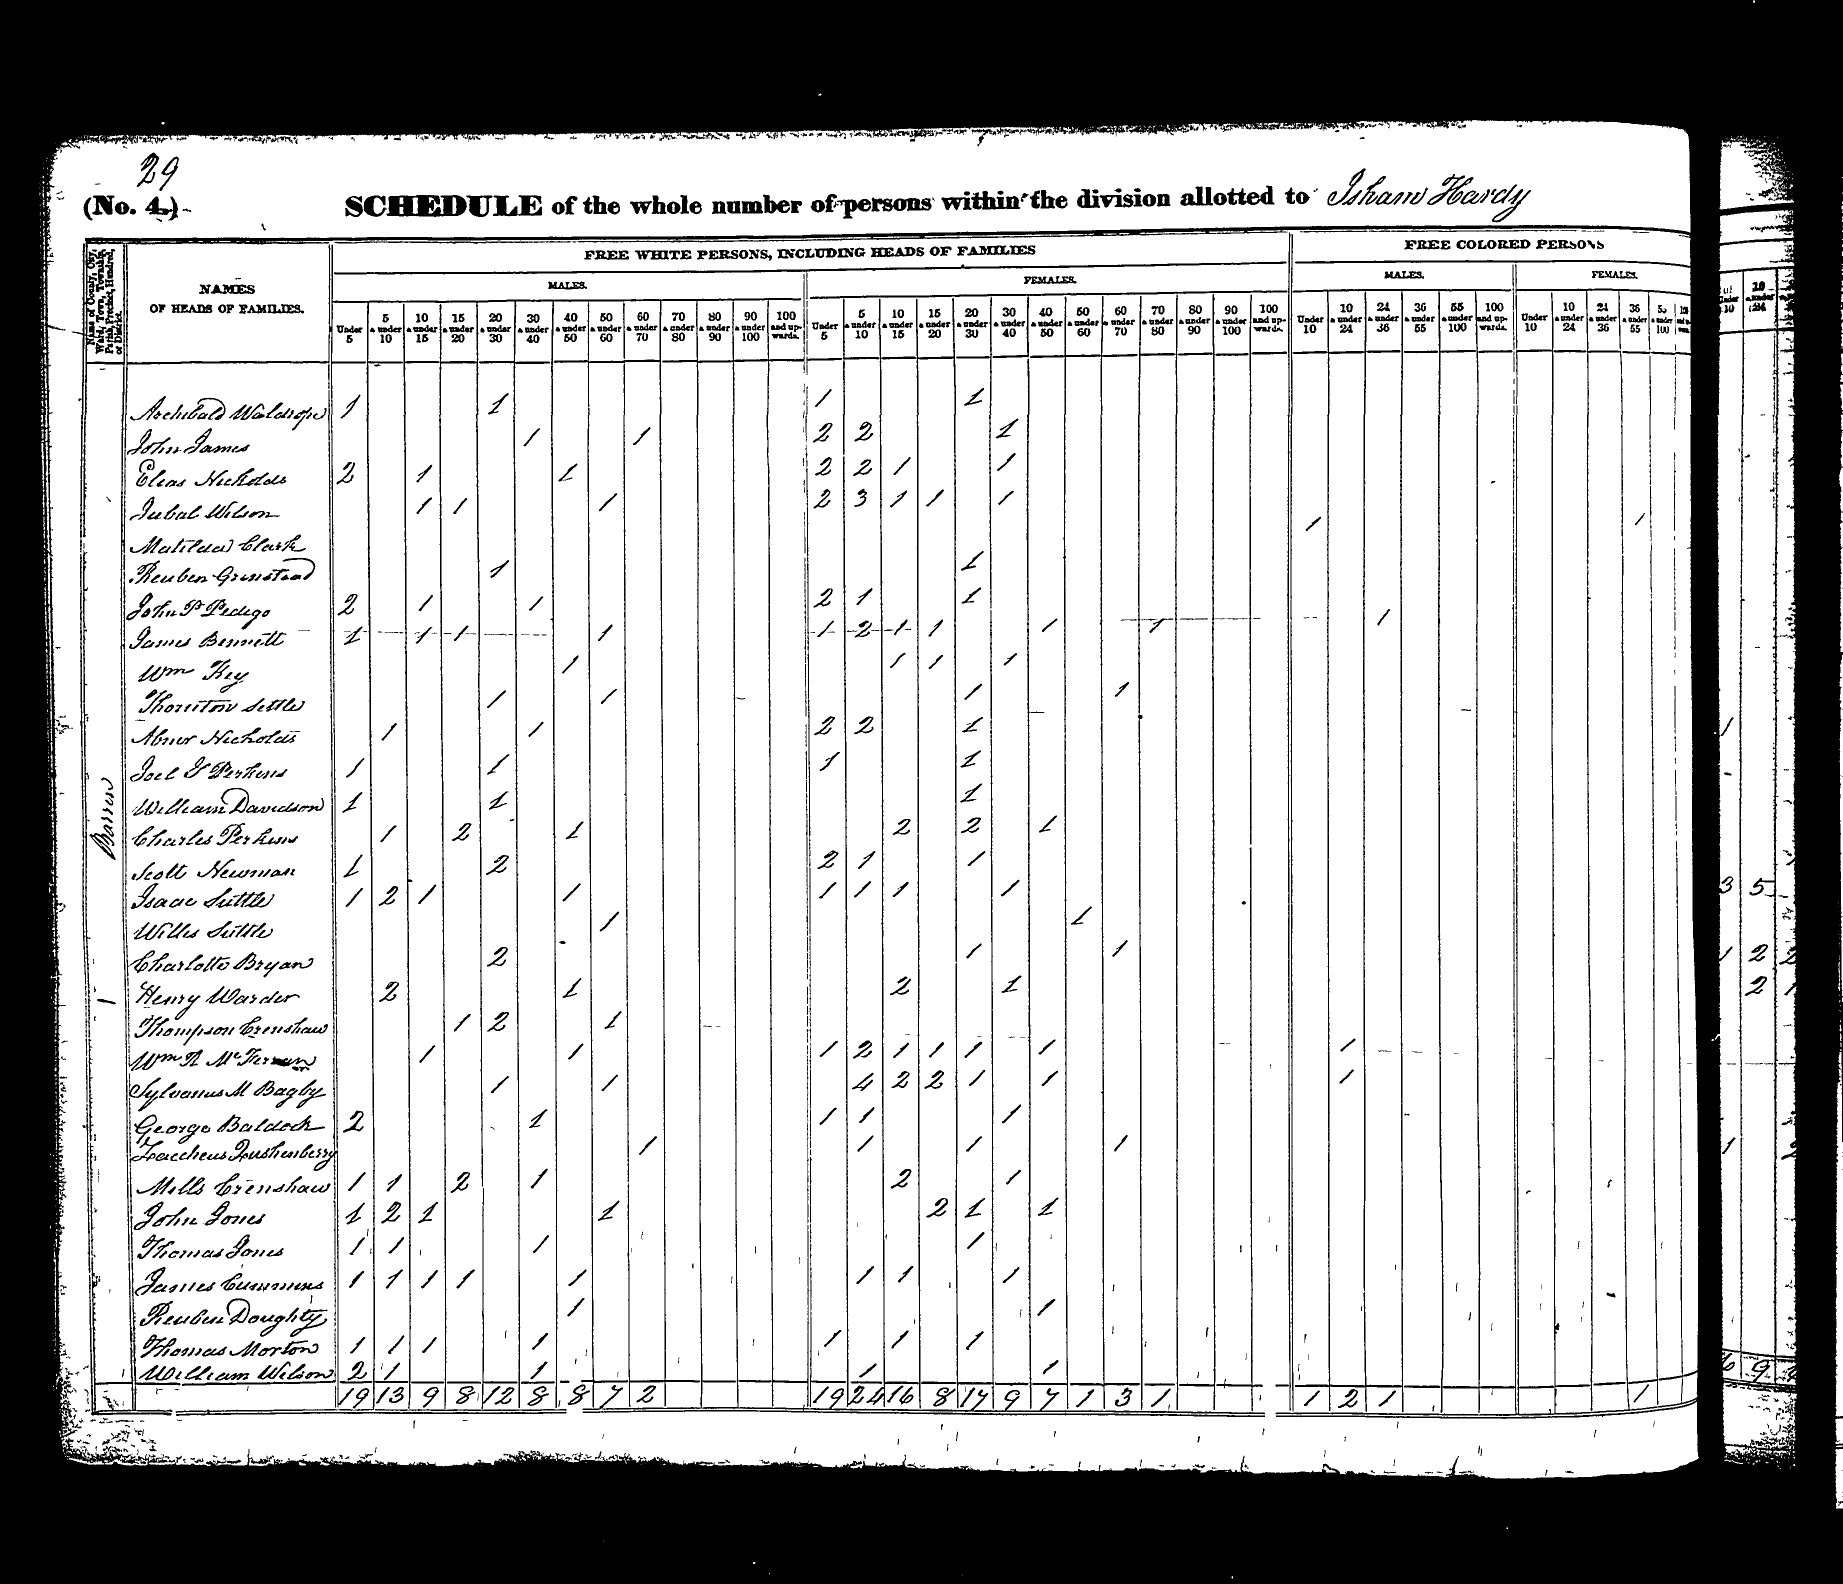 29
(No. 4.) SCHEDULE of the whole number of persons within the division allotted to Isham Hardy
Name of County, City, Ward, Town, Township, Parish, Precinct, Hundred, or District.
NAMES OF HEADS OF FAMILIES.
FREE WHITE PERSONS, INCLUDING HEADS OF FAMILIES
FREE COLORED PERSONS
MALES. FEMALES. MALES. FEMALES.
Under 5 5 & under 10 10 & under 15 15 & under 20 20 & under 30 30 & under 40 40 & under 50 50 & under 60 60 & under 70 70 & under 80 80 & under 90 90 & under 100 100 and upwards. Under 5 5 & under 10 10 & under 15 15 & under 20 20 & under 30 30 & under 40 40 & under 50 50 & under 60 60 & under 70 70 & under 80 80 & under 90 90 & under 100 100 and upwards. Under 10 10 & under 24 24 & under 36 36 & under 55 55 & under 100 100 and upwards. Under 10 10 & under 24 24 & under 36 36 & under 55
Barren
Archibald Waldrope 1 1 1 1
John James 1 1 2 2 1
Elias Nicholds 2 1 1 2 2 1 1
Jubal Wilson 1 1 1 2 3 1 1 1
Matilda Clark 1 1
Reuben Grinstead 1 1
John P Pedigo 2 1 1 2 1 1
James Bennett 1 1 1 1 1 2 1 1 1 1 1
Wm Key 1 1 1 1
Thornton Settle 1 1 1 1
Abner Nicholds 1 1 2 2 1
Joel Y Perkins 1 1 1 1
William Davidson 1 1 1
Charles Perkins 1 2 1 2 2 1
Scott Newman 1 2 2 1 1
Isaac Settle 1 2 1 1 1 1 1 1
Willis Settle 1 1
Charlotte Bryan 2 1 1
Henry Warder 2 1 2 1
Thompson Crenshaw 1 2 1
Wm R McFerran 1 1 1 2 1 1 1 1 1
Sylvanus M Bagby 1 1 4 2 2 1 1 1
George Baldock 2 1 1 1 1
Zaccheus Quishenberry 1 1 1 1
Mills Crenshaw 1 1 2 1 2 1
John Jones 1 2 1 1 2 1 1
Thomas Jones 1 1 1 1
James Cummins 1 1 1 1 1 1 1 1
Reuben Doughty 1 1
Thomas Morton 1 1 1 1 1 1 1
William Wilson 2 1 1 1 1
19 13 9 8 12 8 8 7 2 19 24 16 8 17 9 7 1 3 1 1 2 1 1